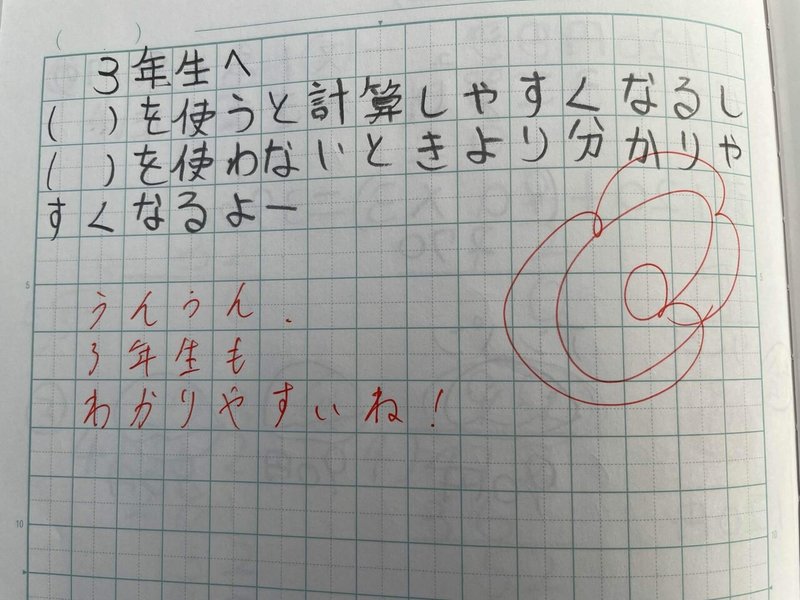 ( )
3年生へ
( )を使うと計算しやすくなるし
( )を使わないときより分かりや
すくなるよー
うんうん.
3年生も
わかりやすいね!
5
5
10
10